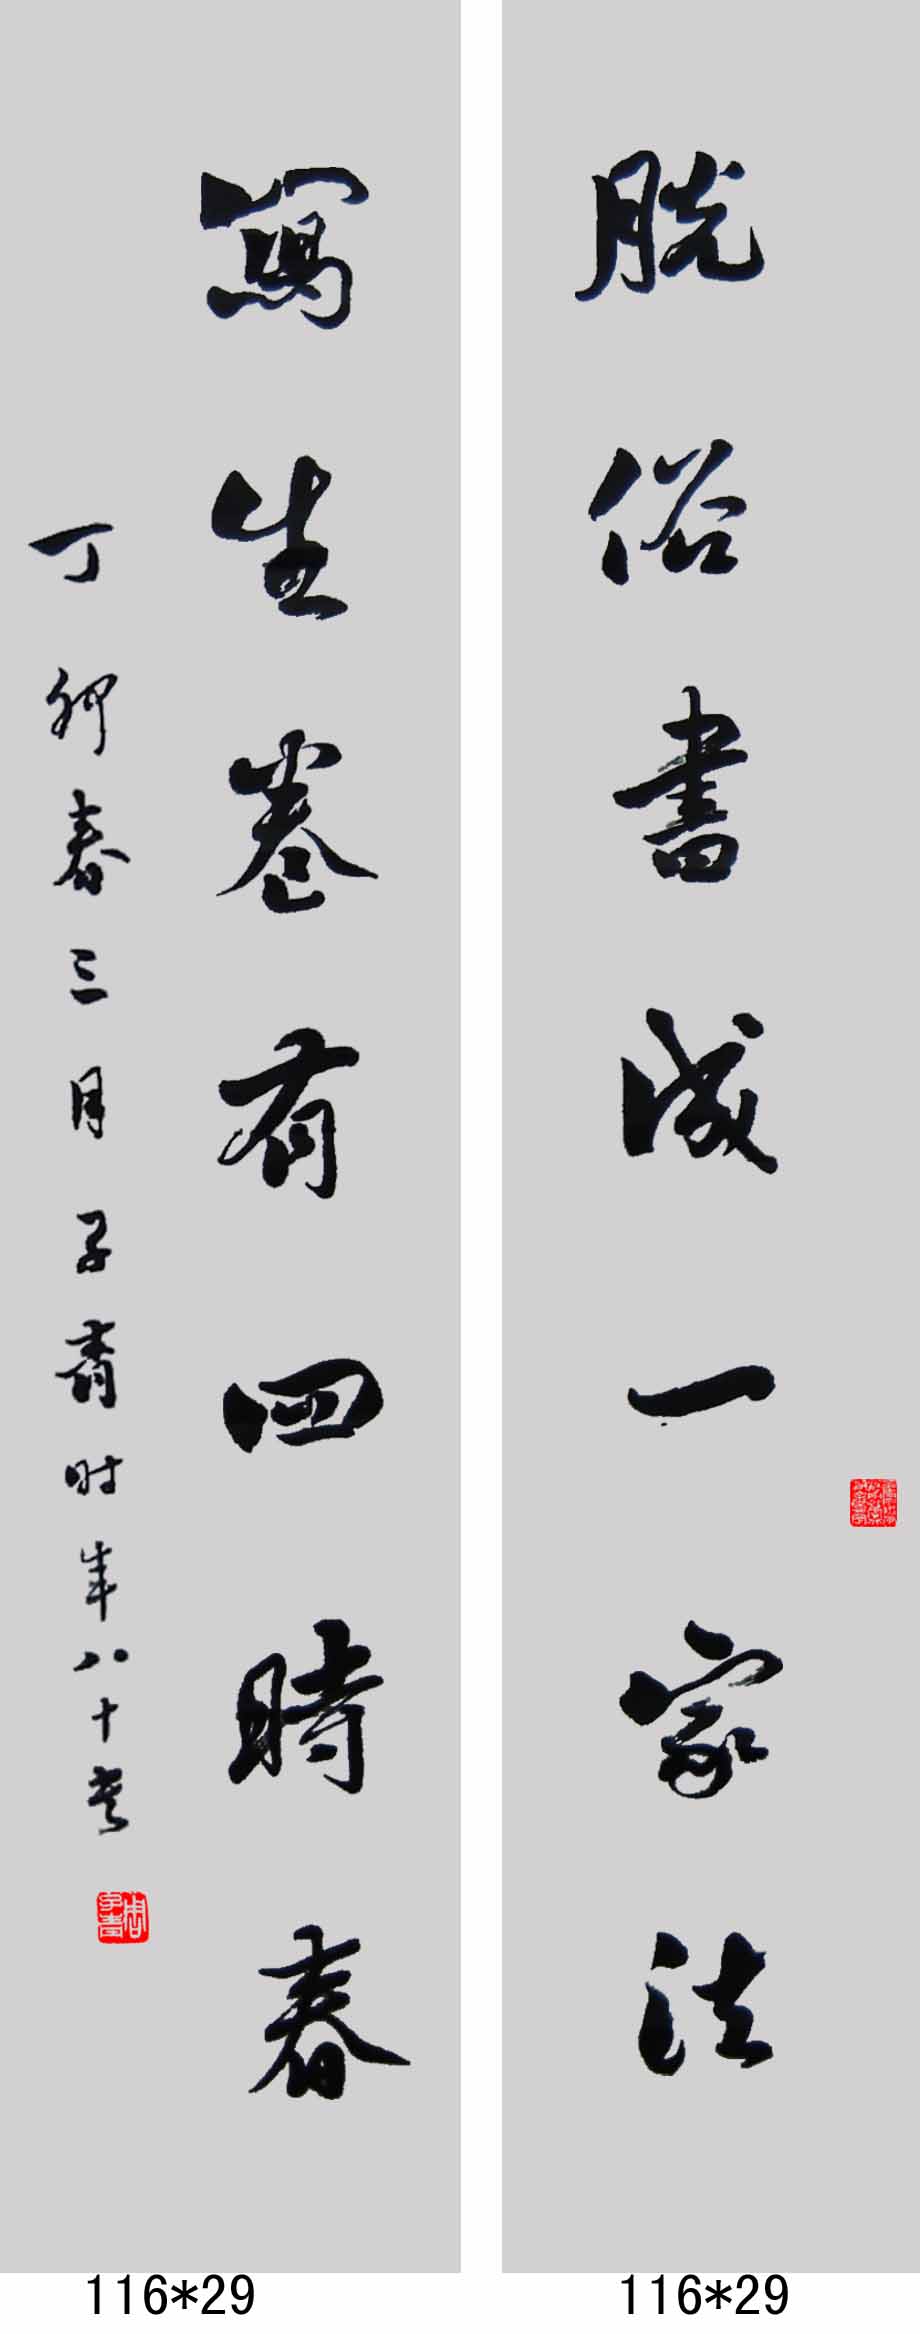 脱俗書成一家法
寫生卷有四時春
丁卯春三月子青时年八十叟
116*29
116*29